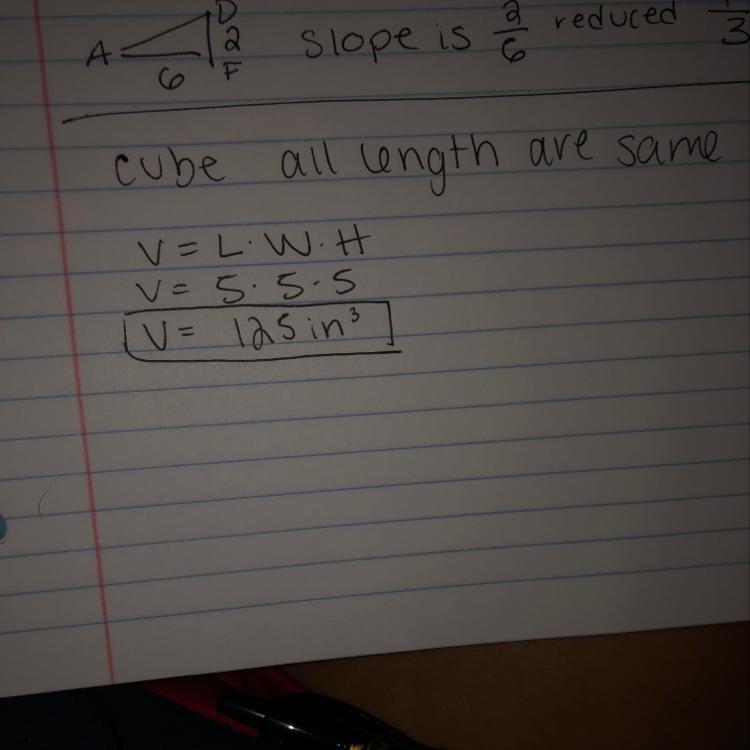 D
A 2 slope is 2/6 reduced 1/3
6 F
cube all length are same
V = L· W· H
V = 5· 5· 5
V = 125 in³